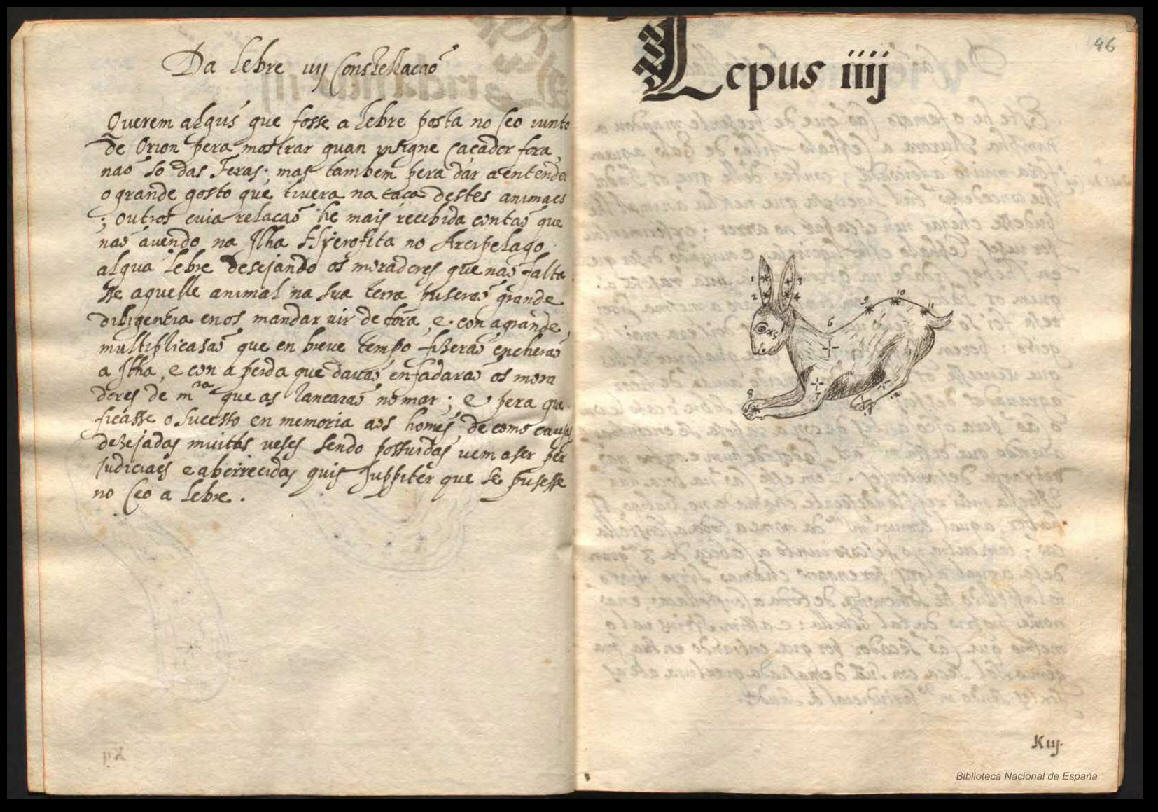 Da lebre iiij Constellação
Querem algũs que fosse a lebre posta no ceo iunto
de Orion pera mostrar quan insigne caçador fora
não so das feras; mas tambem pera dar a entender
o grande gosto que tivera na caça destes animaes
; outros cuia relação he mais recebida contão que
não avendo na Ilha Hyerofita no Arcipelago
algũa lebre desejando os moradores que não falta
sse aquelle animal na sua terra puserão grande
diligentia en os mandar vir de fora, e con a grande
multiplicasão que en breve tempo fizerão encherão
a Ilha, e con a perda que davão enfadarão os mora
dores de mra que as lançarão no mar; e pera que
ficasse o sucesso en memoria aos homẽs de como cousas
desejadas muitas veses sendo possuidas vem a ser per
judiciaes e aborrecidas quis Juppiter que se pusesse
no ceo a lebre.
Lepus iiij
46
1
2
6
9
10
11
Kiij.
Biblioteca Nacional de España